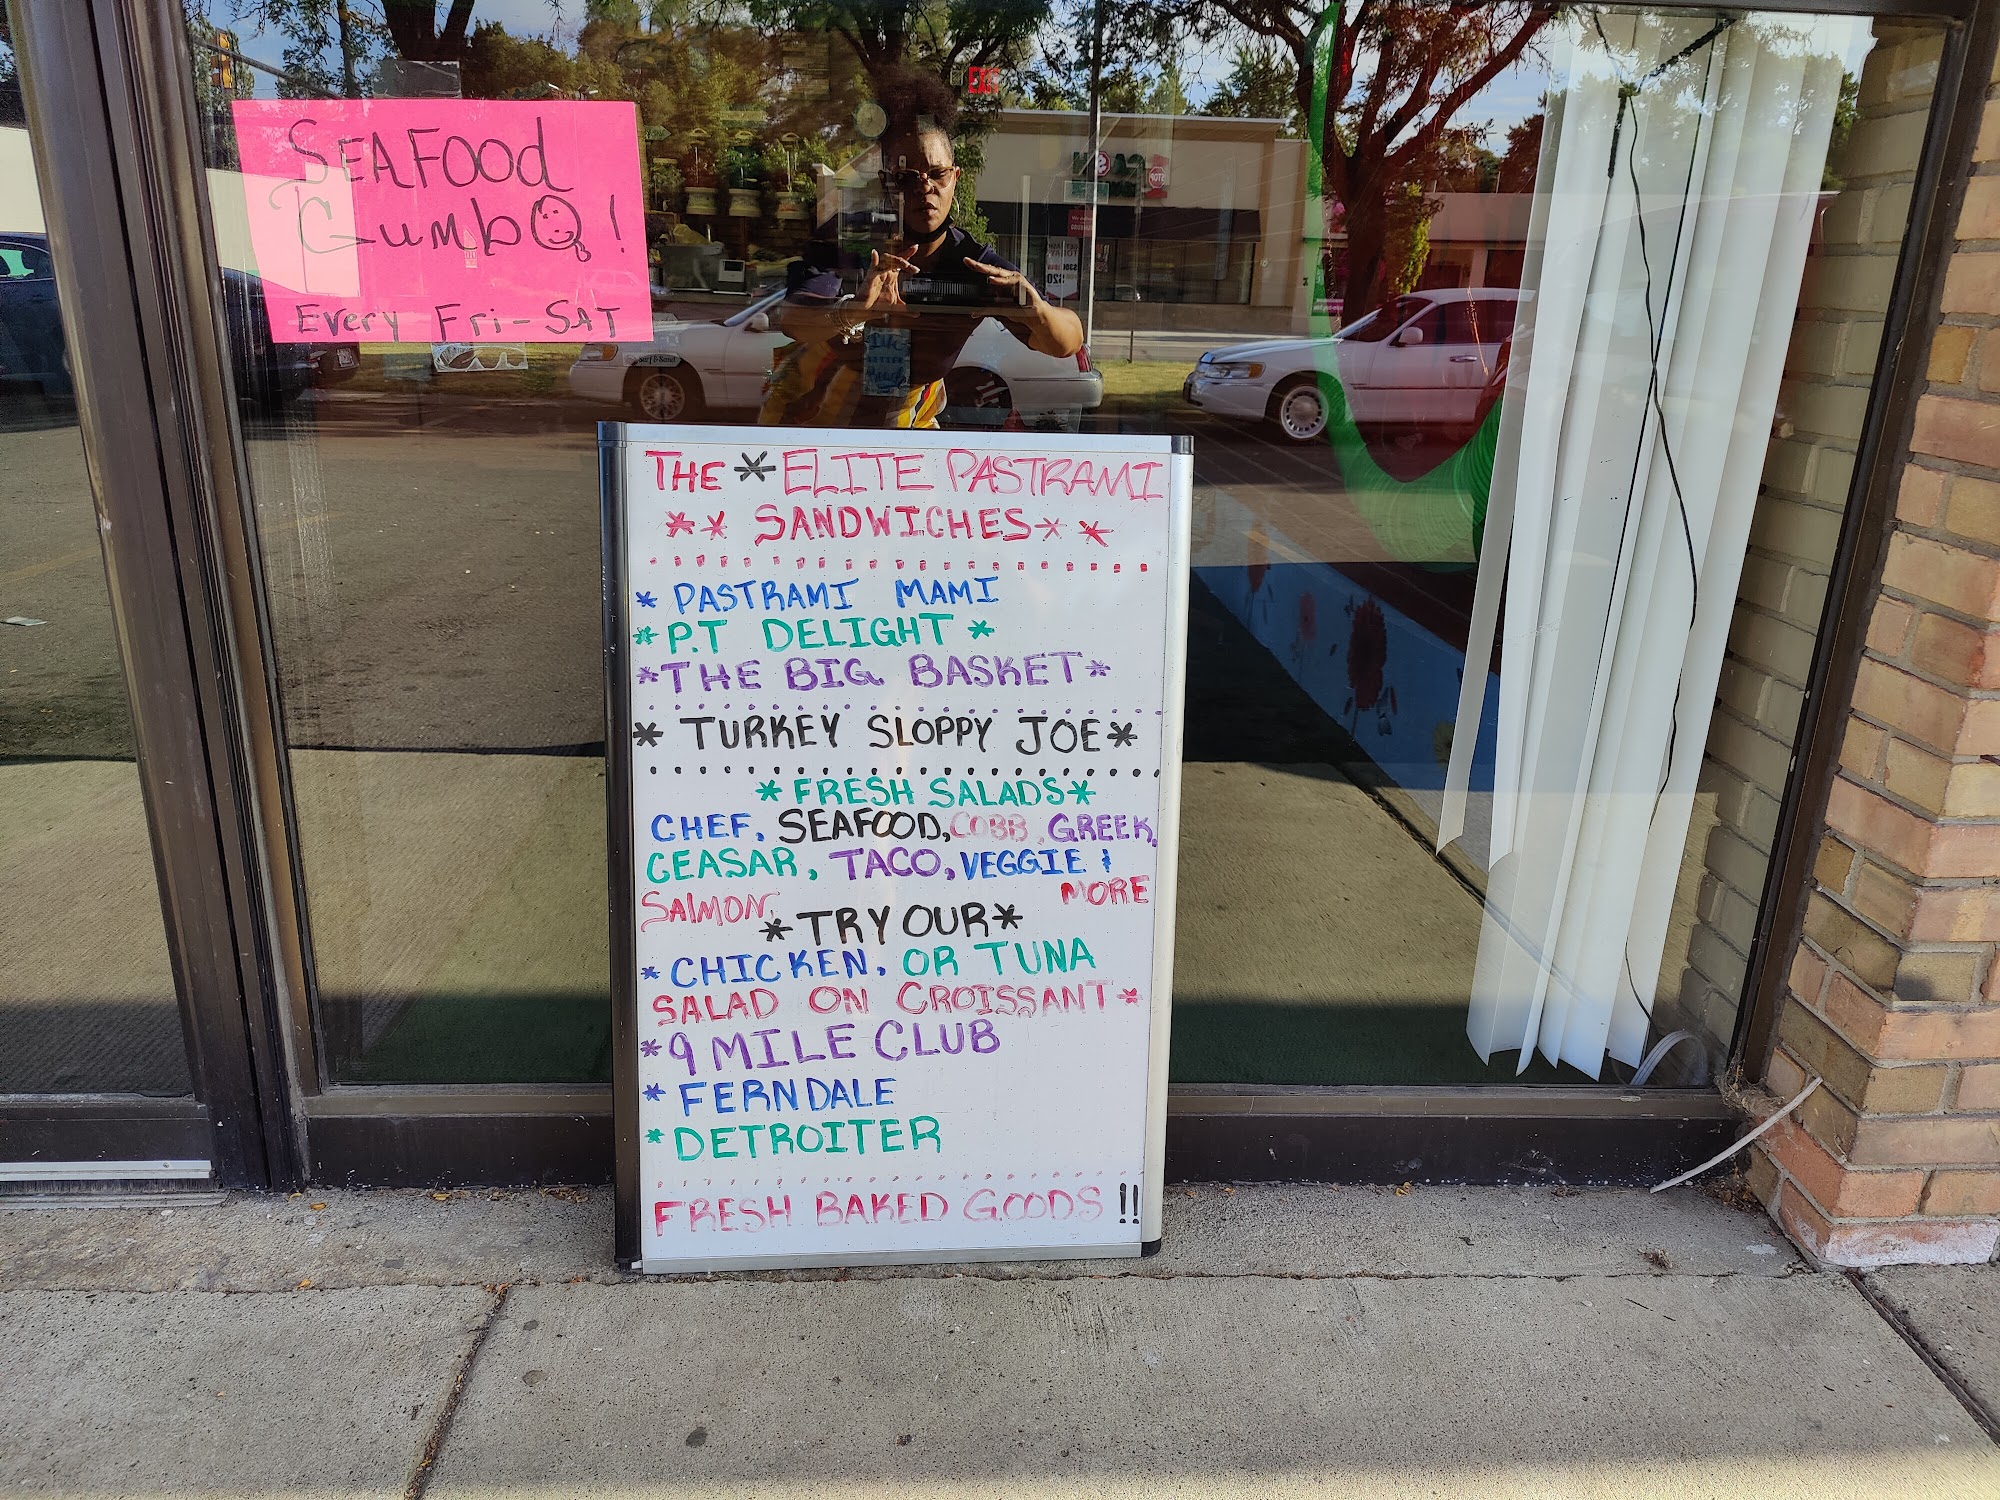 SEAFOOd
GumbO!
Every Fri-SAT
EXIT
Surf & Sand
STOP
THE * ELITE PASTRAMI
** SANDWICHES* *
* PASTRAMI MAMI
*P.T DELIGHT *
*THE BIG BASKET*
* TURKEY SLOPPY JOE*
*FRESH SALADS*
CHEF, SEAFOOD, COBB, GREEK,
CEASAR, TACO, VEGGIE &
SAlMON, MORE
*TRY OUR*
*CHICKEN, OR TUNA
SALAD ON CROISSANT*
*9 MILE CLUB
* FERNDALE
*DETROITER
FRESH BAKED GOODS !!